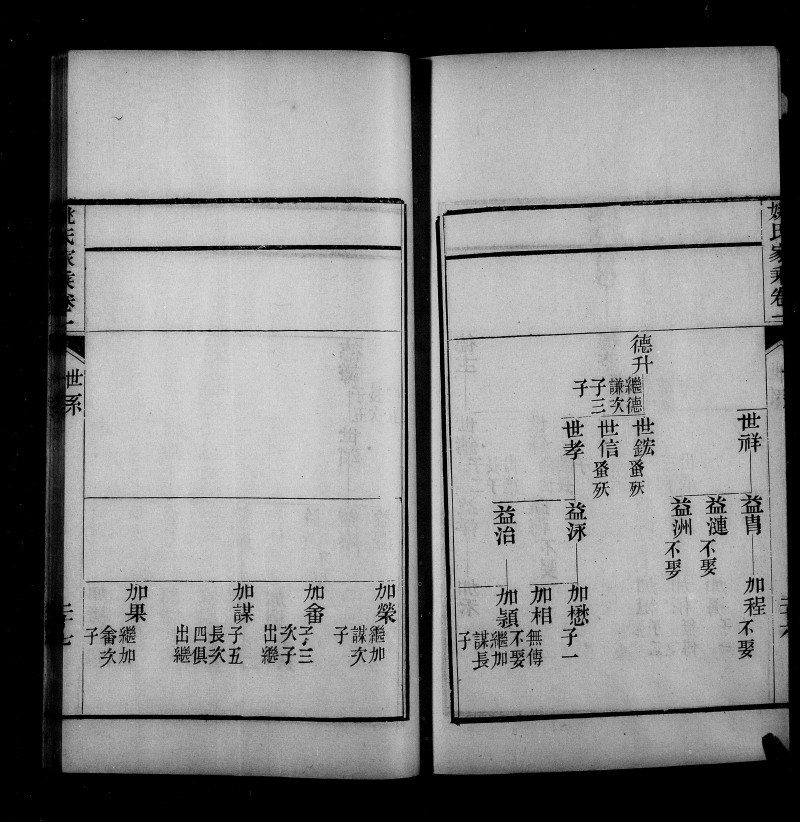 姚氏家乘卷一
世祥
益胄
加程
不娶
益漣
不娶
益洲
不娶
德升
繼德
謙次
子三
子
世鋐
蚤殀
世信
蚤殀
世孝
益泳
加懋
子一
加相
無傳
不娶
益治
加頴
繼加
謀長
子
加榮
繼加
謀次
子
加畨
子三
次子
出繼
加謀
子五
長次
四俱
出繼
加果
繼加
畨次
子
姚氏家乘卷一
世系
二十七